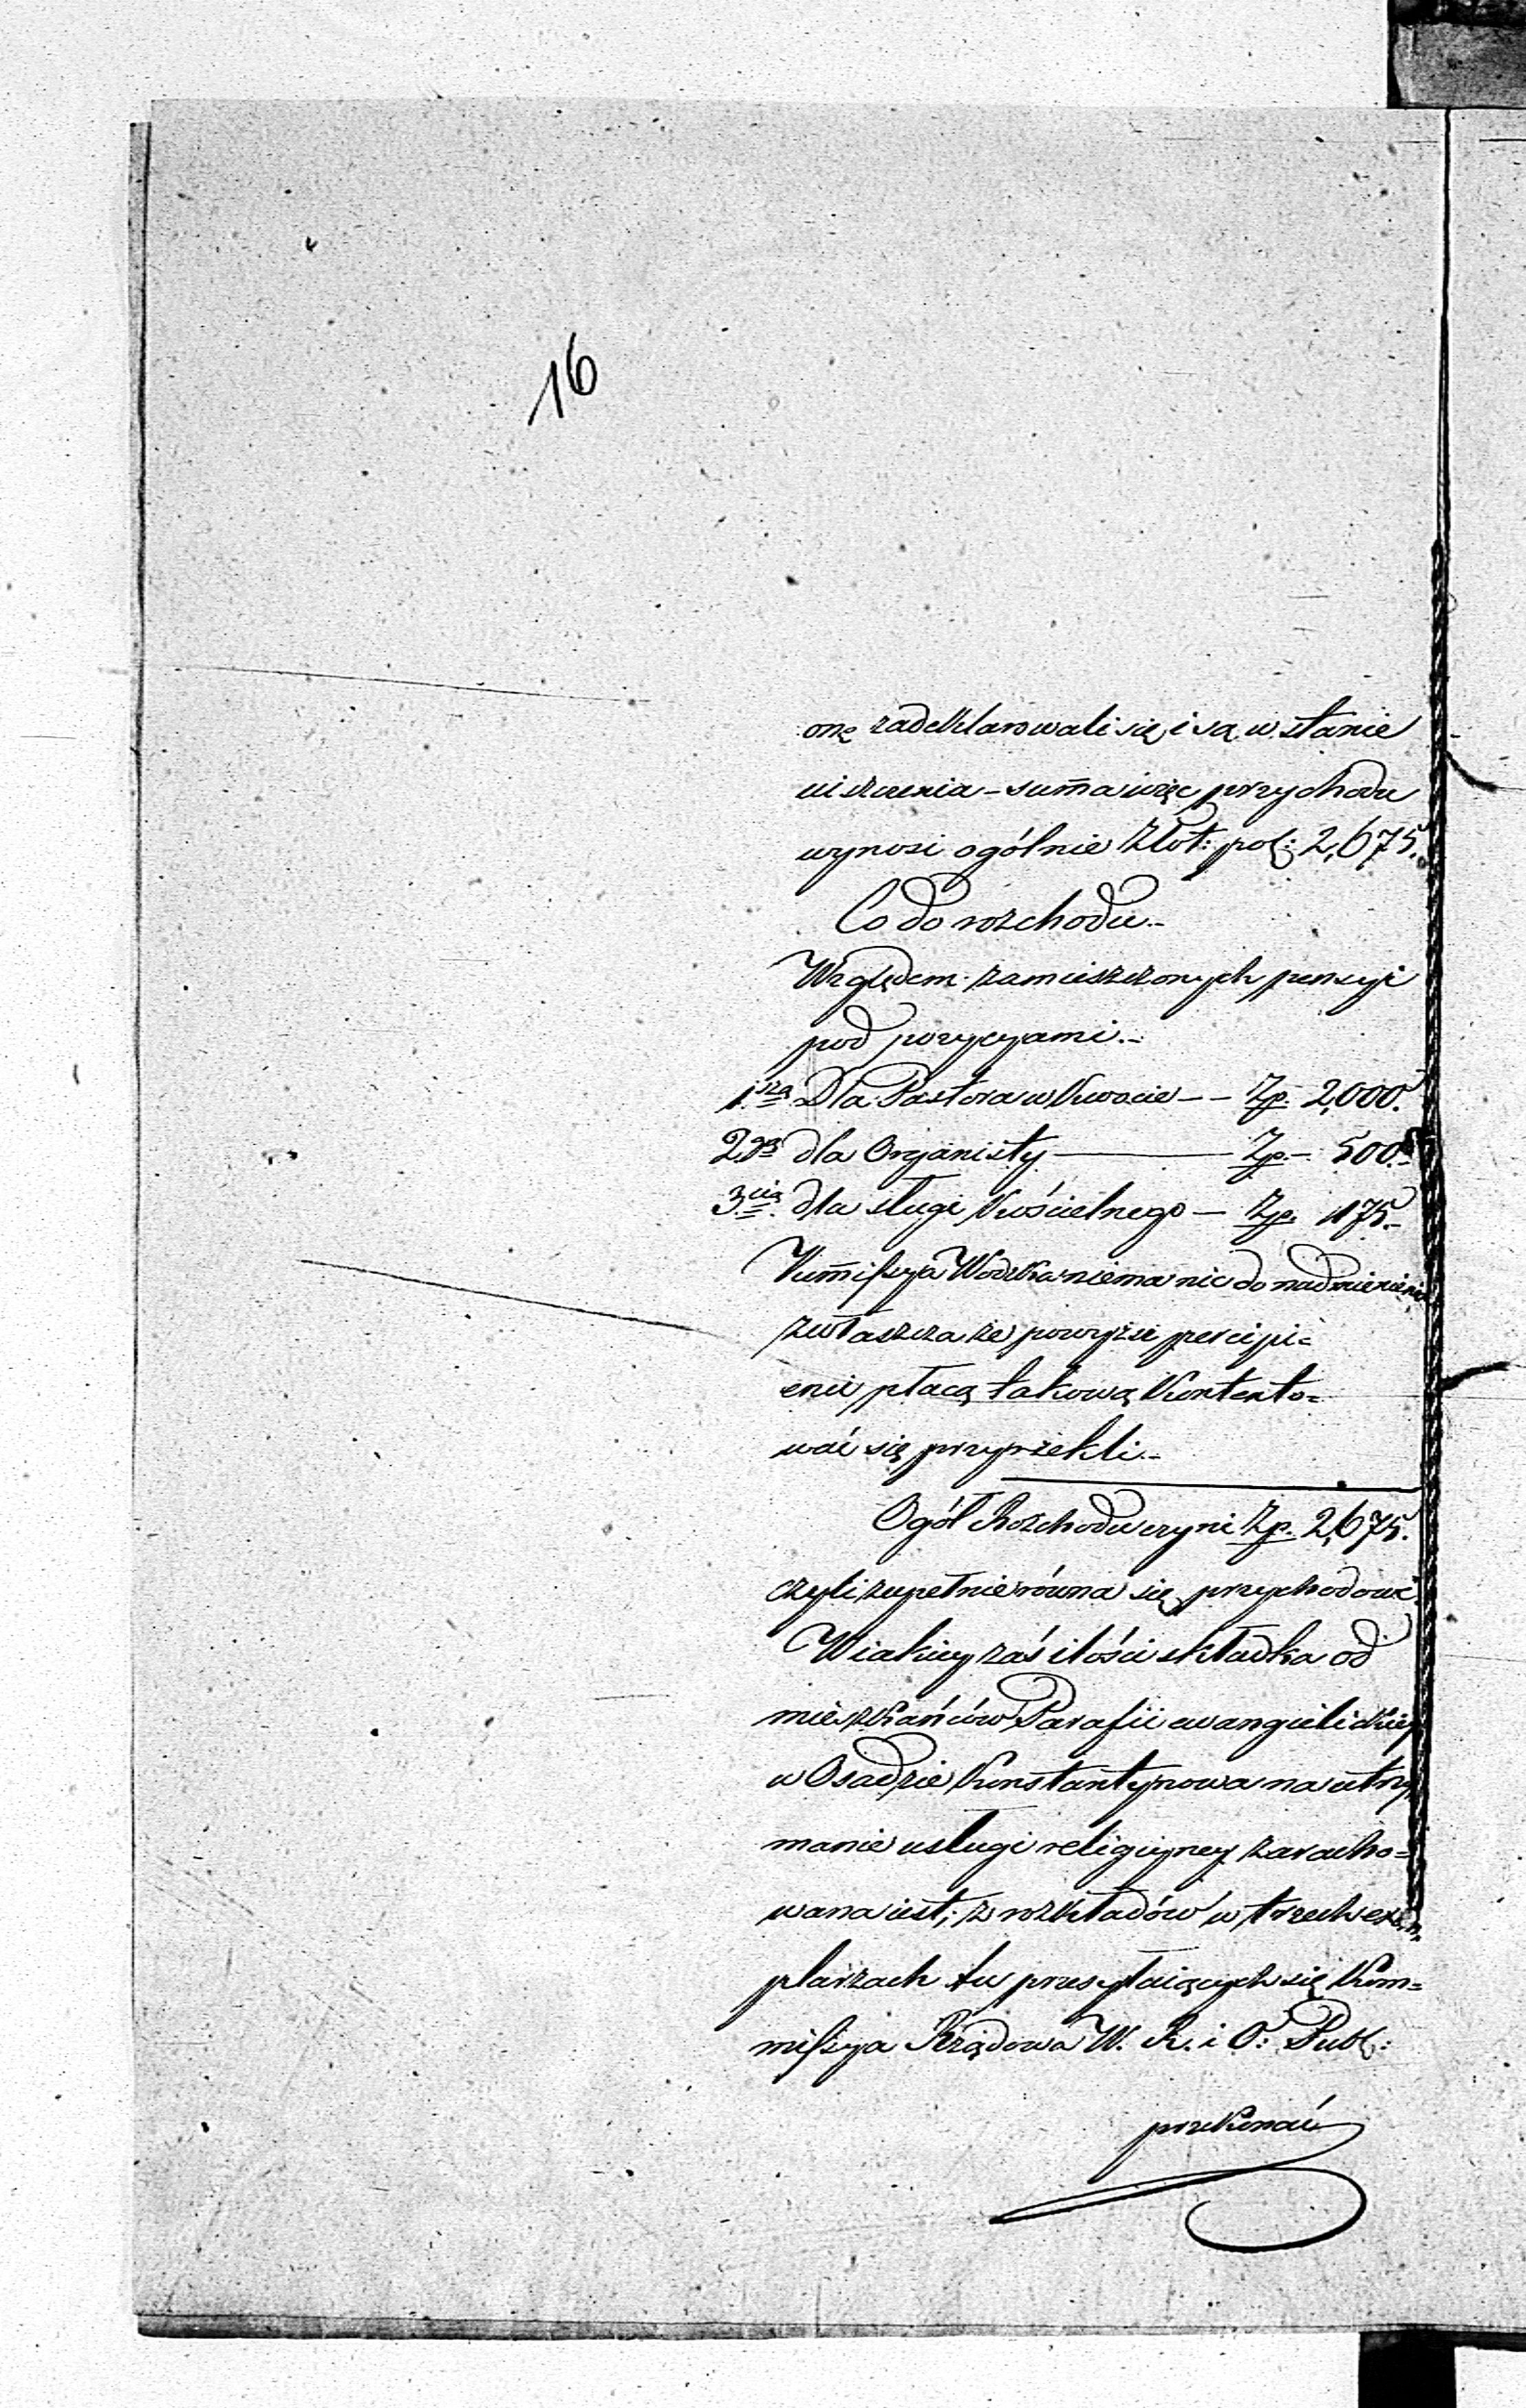 16
onę zadeklarowali się i są w stanie
uiszczenia – sum̄a więc przychodu
wynosi ogólnie Złot: pol: 2,675.
Co do rozchodu.–
Względem zamieszczonych pensyi
pod pozycyami.–
1.sza Dla Pastora w kwocie – – Zp. 2,000.
2.ga dla Organisty — Zp.– 500.–
3.cia dla sługi kościelnego — Zp. 175.–
Kom̄issya Wodzka niema nic do nadmienienia
zwłaszcza że powyżsi percipi=
enci płacą takową kontento=
wać się przyrzekli.–
Ogół Rozchodu czyni Zp. 2,675.
czyli zupełnie równa się przychodowi.
W iakiey zaś ilości składka od
mieszkańców Parafii ewangielickiey
w Osadzie Konstantynowa na utrzy
manie usługi religiyney zaracho=
wana iest; z rozkładów w trzech exem
plarzach tu przesyłaiących się Kom=
missya Rządowa W. R. i O: Publ:
przekonać